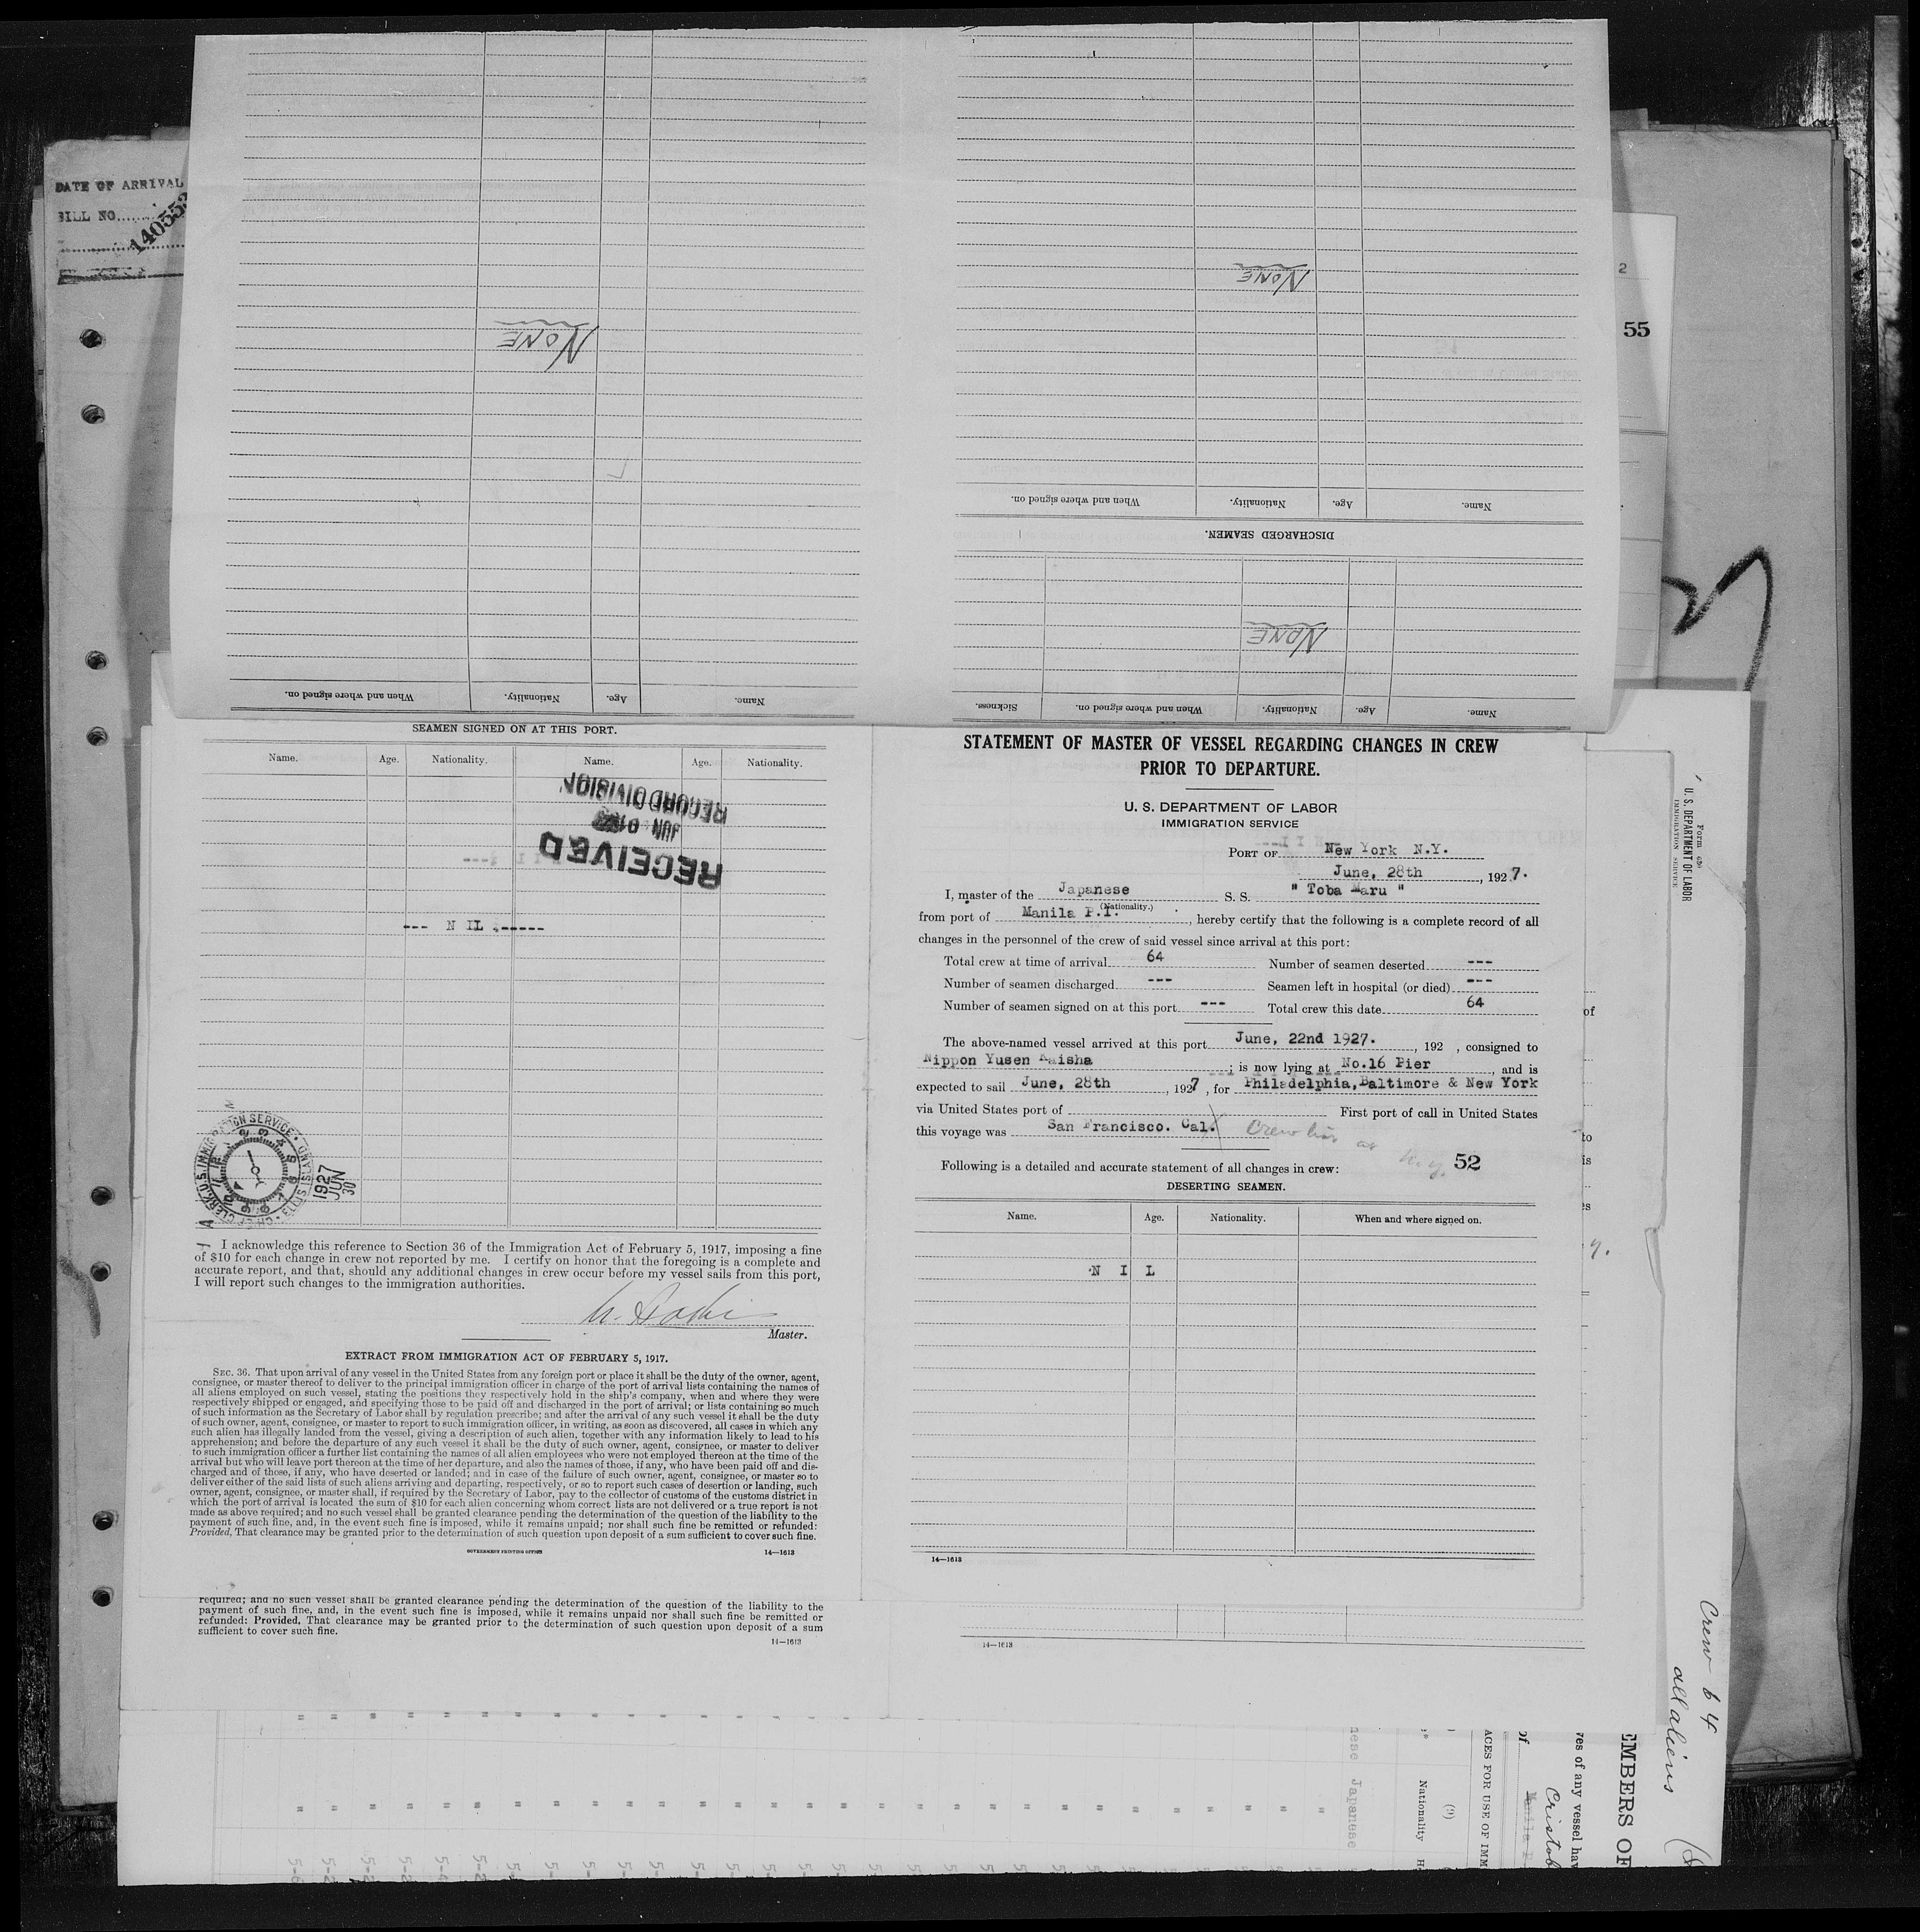 DATE OF ARRIVAL
BILL NO.
14055
NONE
NONE
NONE
When and where signed on.
Nationality.
Age.
Name.
When and where signed on.
Nationality.
Age.
Name.
DISCHARGED SEAMEN.
Sickness.
When and where signed on.
Nationality.
Age.
Name.
2
55
SEAMEN SIGNED ON AT THIS PORT.
Name. Age. Nationality. Name. Age. Nationality.
RECORD DIVISION
JUN
RECEIVED
--- N IL -----
CHIEF CLERK, U.S. IMMIGRATION SERVICE, ELLIS ISLAND
1927
JUN
30
I acknowledge this reference to Section 36 of the Immigration Act of February 5, 1917, imposing a fine
of $10 for each change in crew not reported by me. I certify on honor that the foregoing is a complete and
accurate report, and that, should any additional changes in crew occur before my vessel sails from this port,
I will report such changes to the immigration authorities.
Master.
EXTRACT FROM IMMIGRATION ACT OF FEBRUARY 5, 1917.
SEC. 36. That upon arrival of any vessel in the United States from any foreign port or place it shall be the duty of the owner, agent,
consignee, or master thereof to deliver to the principal immigration officer in charge of the port of arrival lists containing the names of
all aliens employed on such vessel, stating the positions they respectively hold in the ship's company, when and where they were
respectively shipped or engaged, and specifying those to be paid off and discharged in the port of arrival; or lists containing so much
of such information as the Secretary of Labor shall by regulation prescribe; and after the arrival of any such vessel it shall be the duty
of such owner, agent, consignee, or master to report to such immigration officer, in writing, as soon as discovered, all cases in which any
such alien has illegally landed from the vessel, giving a description of such alien, together with any information likely to lead to his
apprehension; and before the departure of any such vessel it shall be the duty of such owner, agent, consignee, or master to deliver
to such immigration officer a further list containing the names of all alien employees who were not employed thereon at the time of the
arrival but who will leave port thereon at the time of her departure, and also the names of those, if any, who have been paid off and dis-
charged and of those, if any, who have deserted or landed; and in case of the failure of such owner, agent, consignee, or master so to
deliver either of the said lists of such aliens arriving and departing, respectively, or so to report such cases of desertion or landing, such
owner, agent, consignee, or master shall, if required by the Secretary of Labor, pay to the collector of customs of the customs district in
which the port of arrival is located the sum of $10 for each alien concerning whom correct lists are not delivered or a true report is not
made as above required; and no such vessel shall be granted clearance pending the determination of the question of the liability to the
payment of such fine, and, in the event such fine is imposed, while it remains unpaid; nor shall such fine be remitted or refunded:
Provided, That clearance may be granted prior to the determination of such question upon deposit of a sum sufficient to cover such fine.
GOVERNMENT PRINTING OFFICE 14—1613
required; and no such vessel shall be granted clearance pending the determination of the question of the liability to the
payment of such fine, and, in the event such fine is imposed, while it remains unpaid nor shall such fine be remitted or
refunded: Provided, That clearance may be granted prior to the determination of such question upon deposit of a sum
sufficient to cover such fine.
14—1613
STATEMENT OF MASTER OF VESSEL REGARDING CHANGES IN CREW
PRIOR TO DEPARTURE.
U. S. DEPARTMENT OF LABOR
IMMIGRATION SERVICE
PORT OF New York N.Y.
June, 28th, 1927.
I, master of the Japanese S. S. " Toba Maru "
(Nationality.)
from port of Manila P.I., hereby certify that the following is a complete record of all
changes in the personnel of the crew of said vessel since arrival at this port:
Total crew at time of arrival 64 Number of seamen deserted ---
Number of seamen discharged --- Seamen left in hospital (or died) ---
Number of seamen signed on at this port --- Total crew this date 64
The above-named vessel arrived at this port June, 22nd 1927. , 192 , consigned to
Nippon Yusen Kaisha ; is now lying at No.16 Pier , and is
expected to sail June, 28th , 1927 , for Philadelphia, Baltimore & New York
via United States port of First port of call in United States
this voyage was San Francisco. Cal. Crew list at
N.Y.
Following is a detailed and accurate statement of all changes in crew: 52
DESERTING SEAMEN.
Name. Age. Nationality. When and where signed on.
N I L
14—1613
14—1613
of
to
is
Form 689
U. S. DEPARTMENT OF LABOR
IMMIGRATION SERVICE
Crew 64
all aliens
EMBERS OF
ves of any vessel hav
of
Manila
Cristob
ACES FOR USE OF IMM
(9)
Nationality
nese Japanese